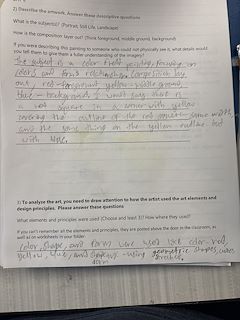 2) Describe the artwork. Answer these descriptive questions
What is the subject(s)? (Portrait, Still Life, Landscape)
How is the composition layer out? (Think foreground, middle ground, background)
If you were describing this painting to someone who could not physically see it, what details would
you tell them to give them a fuller understanding of the imagery?
The subject is a color field painting, focusing on
colors and form's relationship. Composition lay
out, red-foreground, yellow-middle ground,
blue-background. I would say there is
a red square in a corner with yellow
covering the outline of the red square same width,
and the same thing on the yellow outline but
with blue.
3) To analyze the art, you need to draw attention to how the artist used the art elements and
design principles. Please answer these questions
What elements and principles were used (Choose and least 3)? How where they used?
If you can't remember all the elements and principles, they are posted above the door in the classroom, as
well as on worksheets in your folder.
Color, shape, and form were used like color-red,
yellow, blue, and shape - using geometric shapes,
form